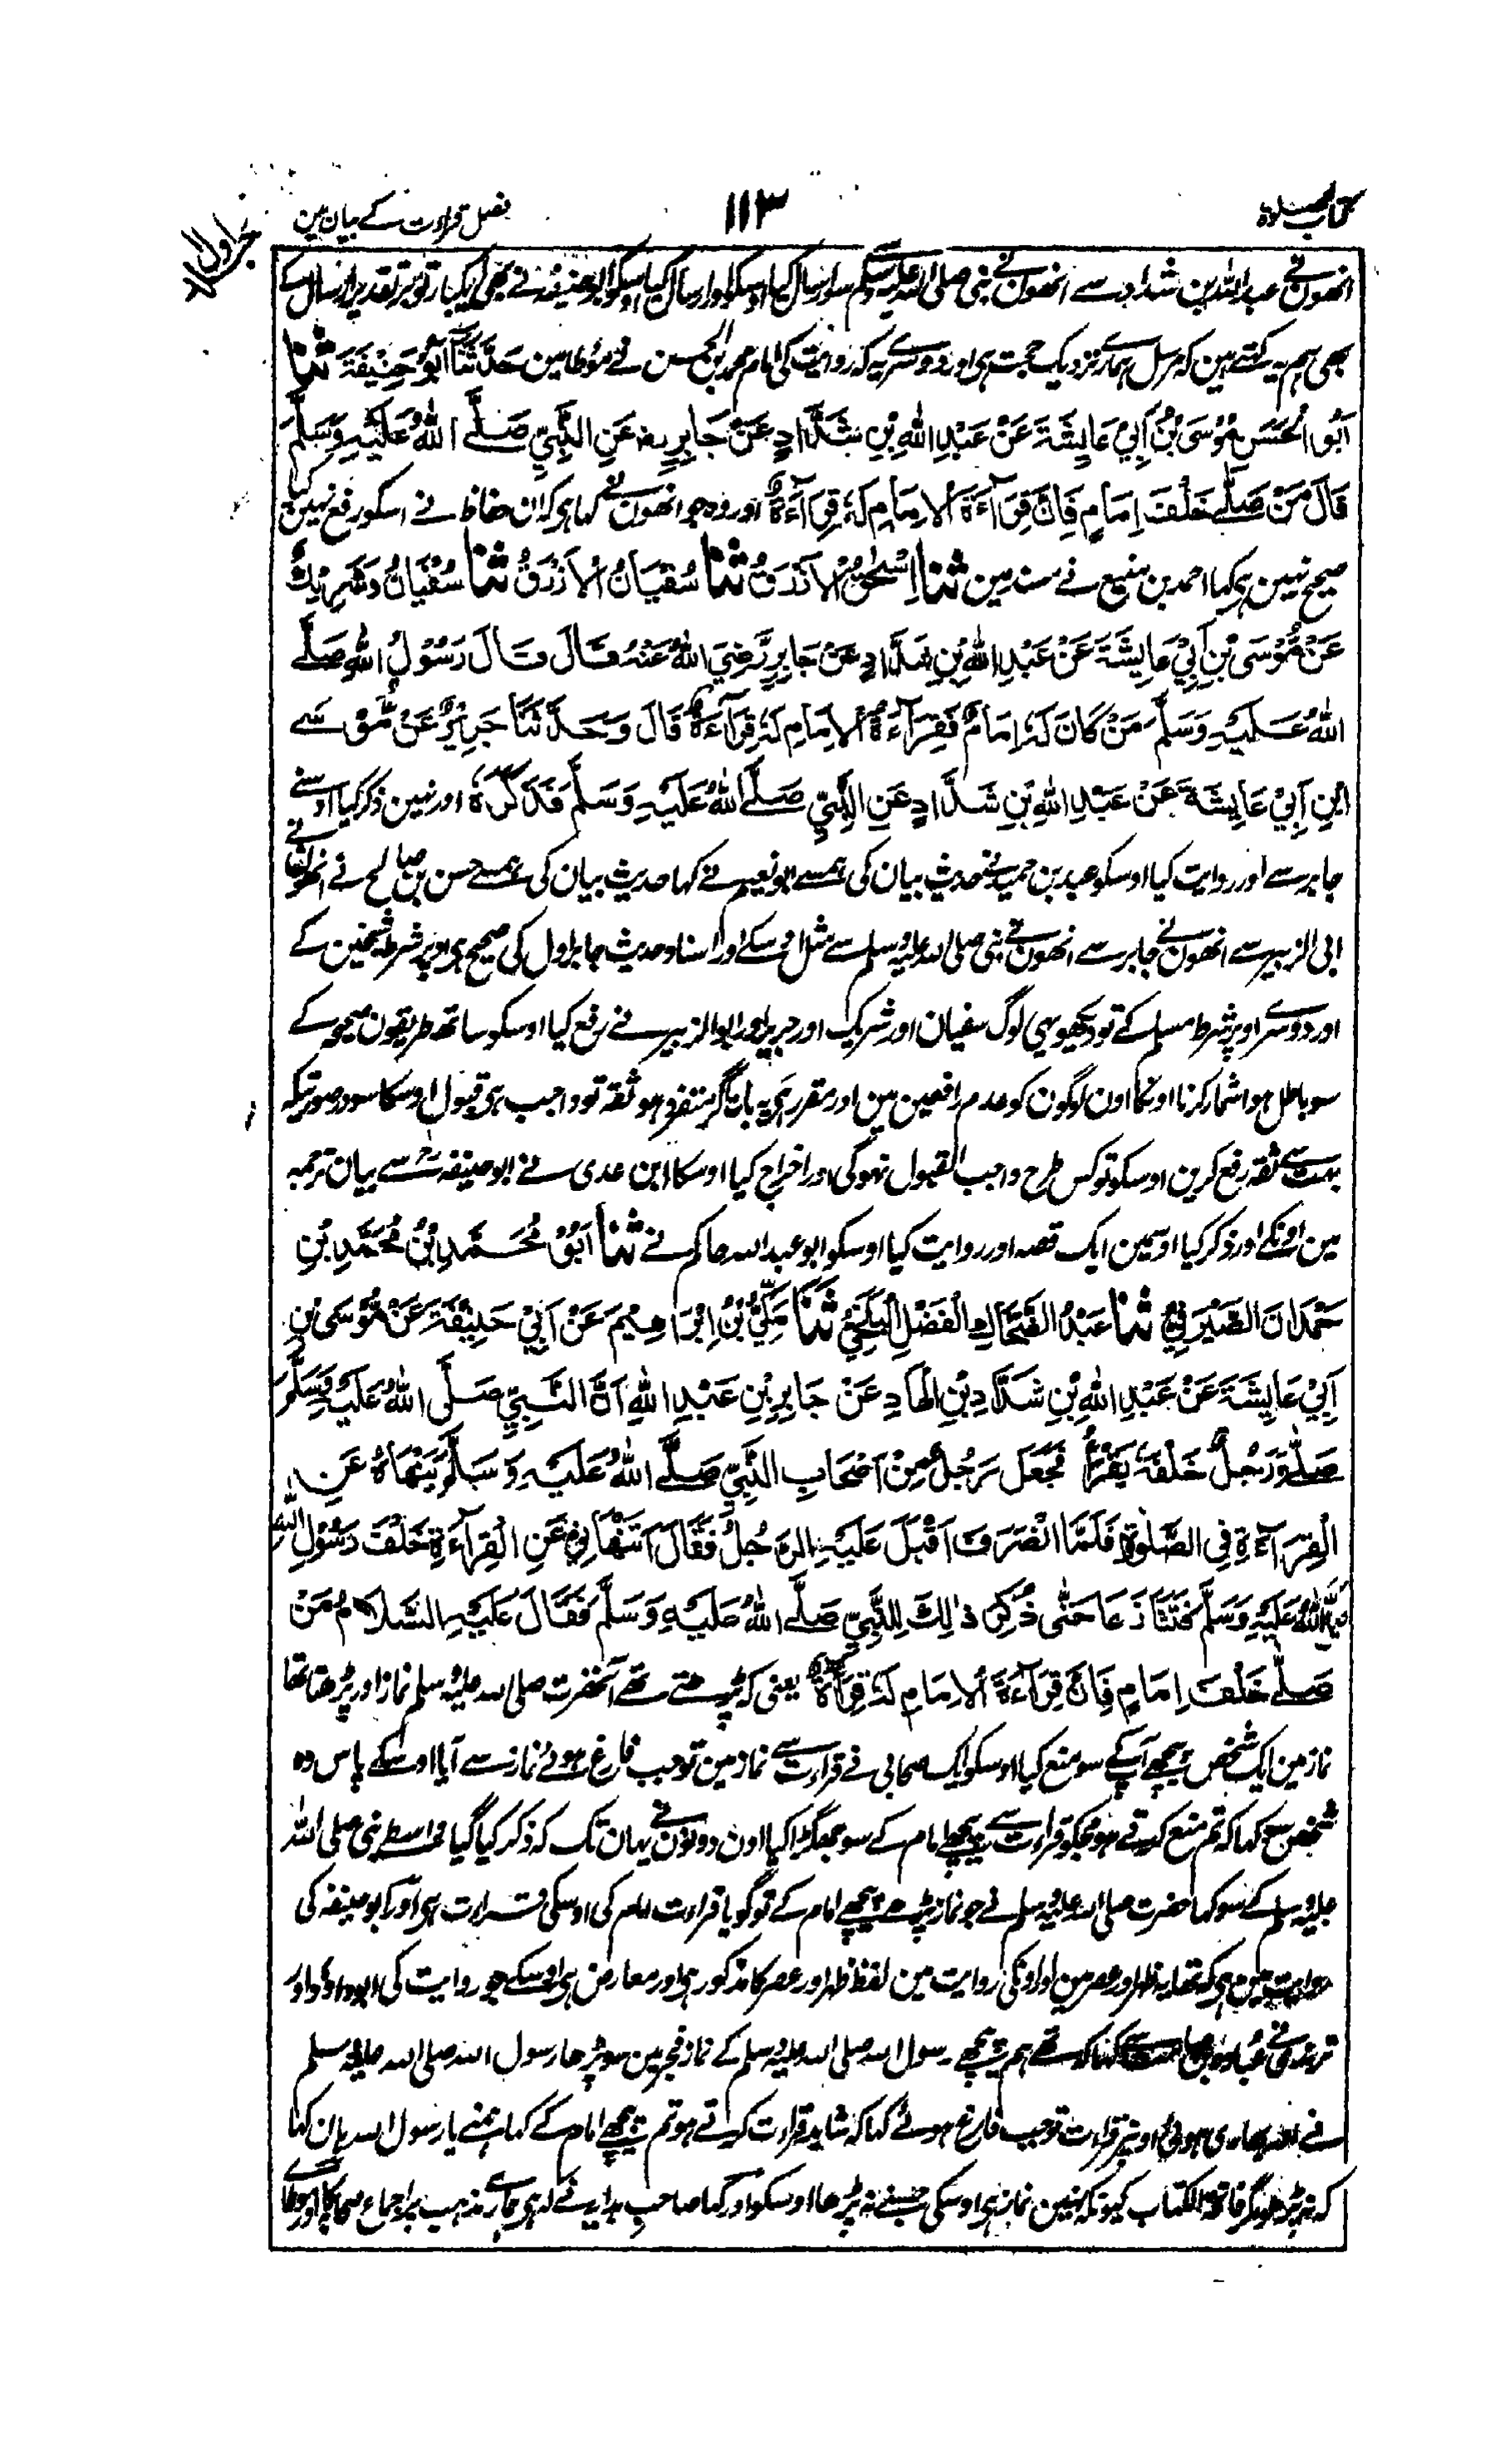 کتاب الصلوۃ
۱۱۳
فصل قراءت کے بیان مین
جز اول
انھون نے عبد اللہ بن شداد سے انھون نے نبی صلی اللہ علیہ وسلم سے سو ارسال کیا اوسکو اور ارسال کیا اوسکو ابو حنیفہ نے بھی ایکبار تو بر تقدیر ارسال کے
بھی ہم یہ کہتے ہین کہ مرسل ہمارے نزدیک حجت ہی اور دوسرے یہ کہ روایت کی امام محمد بن الحسن نے موطا مین حَدَّثَنَا اَبُوْ حَنِيْفَةَ ثَنَا
اَبُو الْحَسَنِ مُوْسَى بْنُ اَبِيْ عَايِشَةَ عَنْ عَبْدِ اللهِ بْنِ شَدَّادٍ عَنْ جَابِرٍ رض عَنِ النَّبِيِّ صَلَّے اللهُ عَلَيْهِ وَسَلَّمَ
قَالَ مَنْ صَلّٰے خَلْفَ اِمَامٍ فَاِنَّ قِرَآءَةَ الْاِمَامِ لَهٗ قِرَآءَةٌ اور وہ جو انھون نے کہا ہی کہ ان حفاظ نے اسکو رفع نہین کیا
صحیح نہین ہی کہا احمد بن منیع نے مسند مین ثَنَا اِسْحٰقُ الْاَزْرَقُ ثَنَا سُفْيَانُ الْاَزْرَقُ ثَنَا سُفْيَانُ وَشَرِيْكٌ
عَنْ مُّوْسَى بْنِ اَبِيْ عَايِشَةَ عَنْ عَبْدِ اللهِ بْنِ شَدَّادٍ عَنْ جَابِرٍ رَّضِيَ اللهُ عَنْهُ قَالَ قَالَ رَسُوْلُ اللهِ صَلَّے
اللهُ عَلَيْهِ وَسَلَّمَ مَنْ كَانَ لَهٗ اِمَامٌ فَقِرَآءَةُ الْاِمَامِ لَهٗ قِرَآءَةٌ قَالَ وَحَدَّثَنَا جَرِيْرٌ عَنْ مُّوْسَے
ابْنِ اَبِيْ عَايِشَةَ عَنْ عَبْدِ اللهِ بْنِ شَدَّادٍ عَنِ النَّبِيِّ صَلَّے اللهُ عَلَيْهِ وَسَلَّمَ فَذَكَرَهٗ اور نہین ذکر کیا اوسنے
جابر سے اور روایت کیا اوسکو عبد بن حمید نے حدیث بیان کی ہمسے ابو نعیم نے کہا حدیث بیان کی ہمسے حسن بن صالح نے انھون نے
ابی الزبیر سے انھون نے جابر سے انھون نے نبی صلی اللہ علیہ وسلم سے مثل اوسکے اور اسناد حدیث جابر اول کی صحیح ہی اوپر شرط شیخین کے
اور دوسرے اوپر شرط مسلم کے تو دیکھو یہی لوگ سفیان اور شریک اور جریر اور ابو الزبیر نے رفع کیا اوسکو ساتھ طریقون صحیحہ کے
سو باطل ہوا شمار کرنا اونکا اون لوگون کو عدم رافعین مین اور مقرر ہی یہ بات اگر متفرد ہو ثقہ تو واجب ہی قبول اوسکا سو در صورتیکہ
بہت سے ثقہ رفع کرین اوسکو تو کس طرح واجب القبول نہوگی اور اخراج کیا اوسکا ابن عدی نے ابو حنیفہ رح سے بیان ترجمہ
مین اونکے اور ذکر کیا اوسمین ایک قصہ اور روایت کیا اوسکو ابو عبد اللہ حاکم نے ثَنَا اَبُوْ مُحَمَّدِ بْنُ مُحَمَّدِ بْنِ
حَمْدَانَ الصَّيْرَفِيُّ ثَنَا عَبْدُ الْفَضْلِ الْبَلْخِيُّ ثَنَا مَكِّيُّ بْنُ اِبْرَاهِيْمَ عَنْ اَبِيْ حَنِيْفَةَ عَنْ مُّوْسَى بْنِ
اَبِيْ عَايِشَةَ عَنْ عَبْدِ اللهِ بْنِ شَدَّادِ بْنِ الْهَادِ عَنْ جَابِرِ بْنِ عَبْدِ اللهِ اَنَّ النَّبِيَّ صَلَّى اللهُ عَلَيْهِ وَسَلَّمَ
صَلّٰے وَرَجُلٌ خَلْفَهٗ يَقْرَأُ فَجَعَلَ رَجُلٌ مِنْ اَصْحَابِ النَّبِيِّ صَلَّے اللهُ عَلَيْهِ وَسَلَّمَ يَنْهَاهُ عَنِ
الْقِرَآءَةِ فِي الصَّلٰوةِ فَلَمَّا انْصَرَفَ اَقْبَلَ عَلَيْهِ الرَّجُلُ فَقَالَ اَتَنْهَانِيْ عَنِ الْقِرَآءَةِ خَلْفَ رَسُوْلِ اللهِ
صَلَّى اللهُ عَلَيْهِ وَسَلَّمَ فَتَنَازَعَا حَتّٰى ذُكِرَ ذٰلِكَ لِلنَّبِيِّ صَلَّے اللهُ عَلَيْهِ وَسَلَّمَ فَقَالَ عَلَيْهِ السَّلَامُ مَنْ
صَلّٰے خَلْفَ اِمَامٍ فَاِنَّ قِرَآءَةَ الْاِمَامِ لَهٗ قِرَآءَةٌ یعنی کہ پڑھتے تھے آنحضرت صلی اللہ علیہ وسلم نماز اور پڑھتا تھا
نماز مین ایک شخص پیچھے آپکے سو منع کیا اوسکو ایک صحابی نے قراءت سے نماز مین تو جب فارغ ہوئے نماز سے آیا اوسکے پاس وہ
شخص کہا کہ تم منع کرتے ہو مجکو قراءت سے پیچھے امام کے سو جھگڑا کیا اون دونون نے یہان تک کہ ذکر کیا گیا واسطے نبی صلی اللہ
علیہ وسلم کے سو کہا حضرت صلی اللہ علیہ وسلم نے جو نماز پڑھے پیچھے امام کے تو گویا قراءت امام کی اوسکی قراءت ہی اور ابو حنیفہ کی
روایت مین ہی کہ تھا یہ ظہر اور عصر مین اور اونکی روایت مین لفظ ظہر اور عصر کا مذکور ہی اور معارض ہی اوسکے جو روایت کی ابوداؤد اور
ترمذی نے عبادہ بن صامت سے کہا کہ تھے ہم پیچھے رسول اللہ صلی اللہ علیہ وسلم کے نماز فجر مین سو پڑھا رسول اللہ صلی اللہ علیہ وسلم
نے بھاری ہوئی اونپر قراءت تو جب فارغ ہوئے کہا کہ شاید قراءت کرتے ہو تم پیچھے امام کے کہا ہمنے یا رسول اللہ ہان کہا
کہ نہ پڑھو مگر فاتحۃ الکتاب کیونکہ نہین نماز ہی اوسکی جسنے نہ پڑھا اوسکو اور کہا صاحب ہدایہ نے کہ ہی ہمارے مذہب پر اجماع صحابہ کا اور